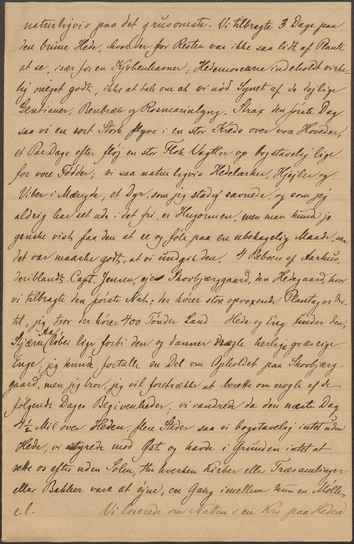 naturligvis paa det grusomste. Vi tilbragte 3 Dage paa
den brune Hede, hvor der for Resten var ikke saa lidt af Planter
at se, især for en Kjøbenhavner, Hedemoserne indeholdt virke-
lig noget godt, ikke at tale om at vi nød Synet af de dejlige
Gentianer, Benbræk og Rosmarinlyng. Strax den første Dag
saa vi en sort Stork flyve i en stor Kreds over vore Hoveder,
et Par Dage efter fløj en stor Flok Vagtler op bogstavelig lige
for vore Fødder, vi saa naturligvis Hedelærker, Hjejler og
Viber i Mængde, et Dyr, som jeg stadig savnede, og som jeg
aldrig har set ude i det fri, er Hugormen, men man kunde jo
ganske vist faa den at se og føle paa en ubehagelig Maade, saa
det var maaske godt, at vi undgik den. 4 Beboere af Aarhus,
deriblandt Capt. Jensen, ejer Skovbjerggaard, den Hedegaard, hvor
vi tilbragte den første Nat, der hører stor opvoxende Plantage der-
til, jeg tror der hører 400 Tønder Land Hede og Eng under den,
Skjern Aa løber lige forbi den og danner nogle herlige græsrige
Enge, jeg kunde fortælle en Del om Opholdet paa Skovbjerg-
gaard, men jeg tror, jeg vil foretrække at berette om nogle af de
følgende Dages Begivenheder; vi vandrede da den næste Dag
4½ Mil over Heden, flere Steder saa vi bogstavelig intet uden
Hede, vi styrede mod Øst og havde i Grunden intet at
rette os efter uden Solen, thi hverken Kirker eller Træsamlinger
eller Bakker vare at øjne, en Gang imellem kun en Mølle
e. l. Vi loverede om Natten i en Kro paa Heden